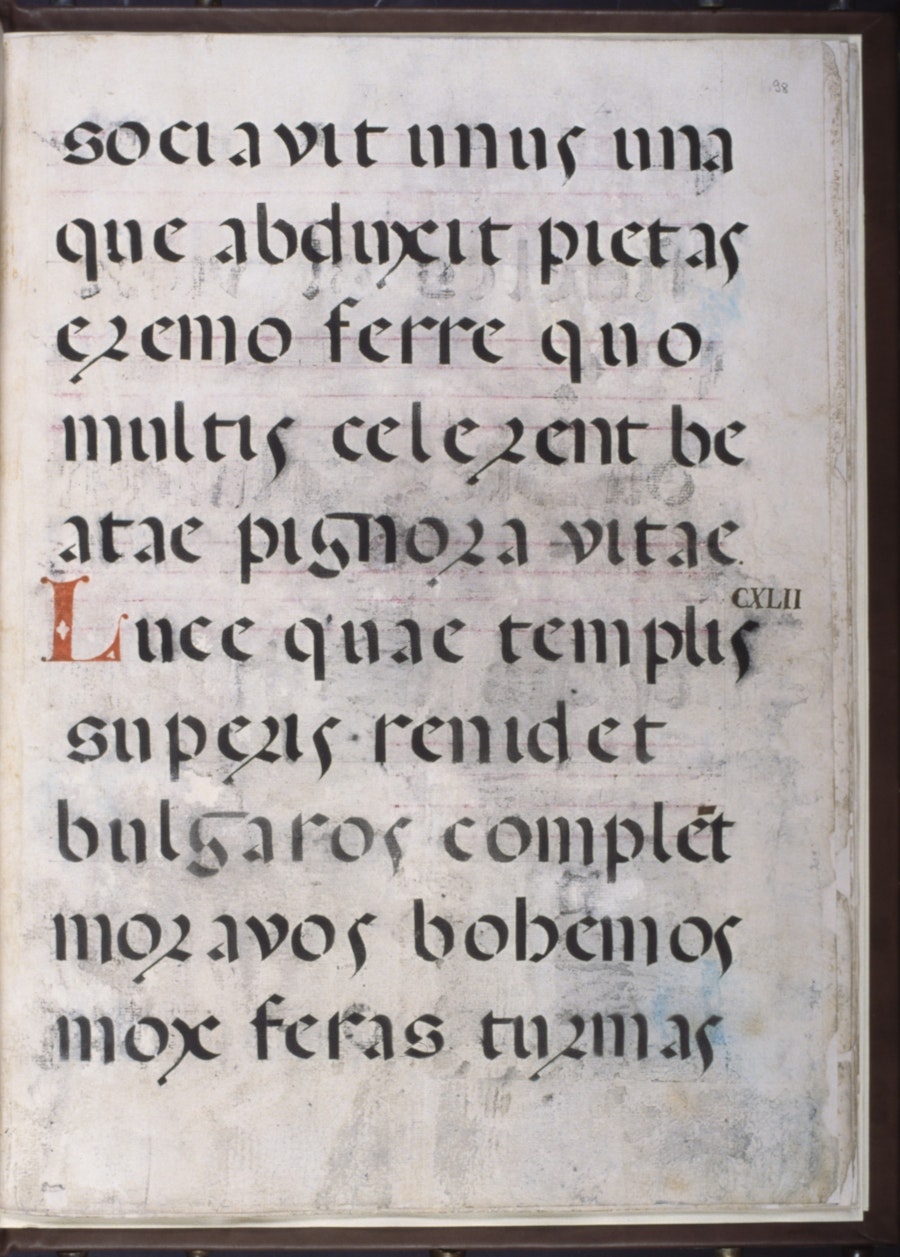 98
sociavit unus una
que abduxit pietas
eremo ferre quo
multis celerent be
atae pignora vitae.
CXLII
Luce quae templis
superis renidet
bulgaros complēt
moravos bohemos
mox feras turmas